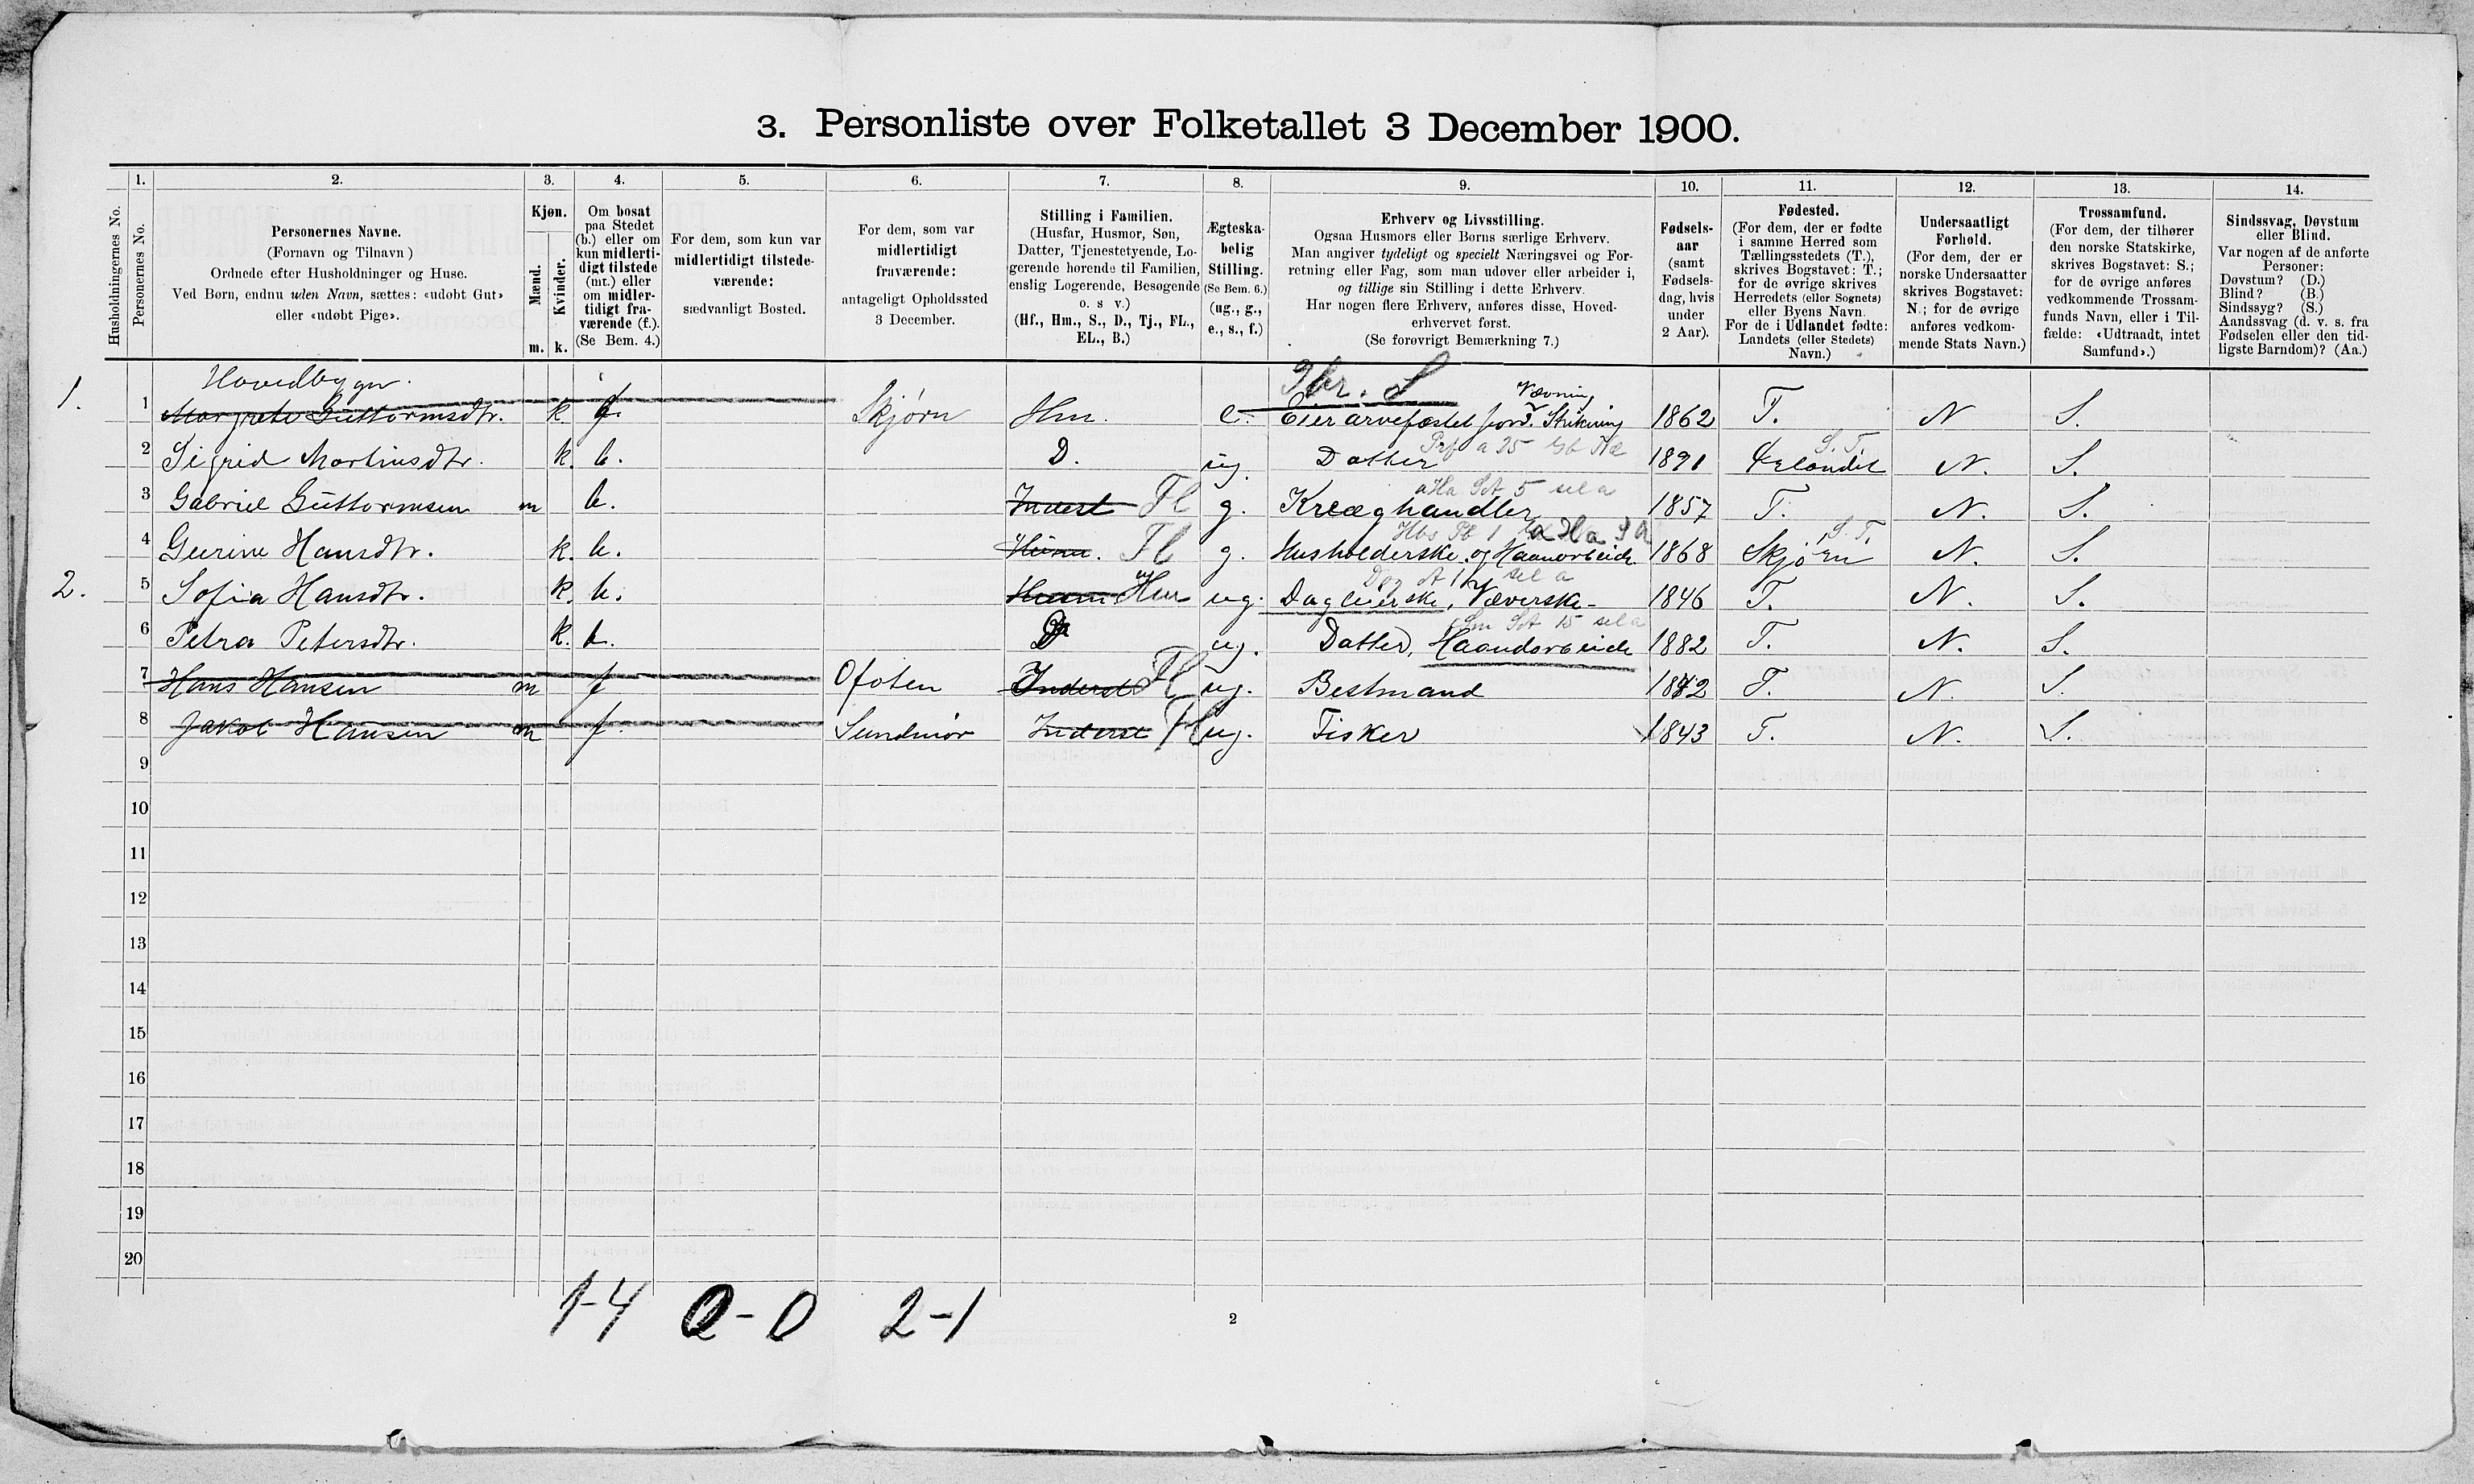 3. Personliste over Folketallet 3 December 1900.
1. 2. 3. 4. 5. 6. 7. 8. 9. 10. 11. 12. 13. 14.
Husholdningernes No.
Personernes No.
Personernes Navne.
(Fornavn og Tilnavn)
Ordnede efter Husholdninger og Huse.
Ved Børn, endnu uden Navn, sættes: «udøbt Gut»
eller «udøbt Pige».
Kjøn.
Mænd.
Kvinder.
m. k.
Om bosat
paa Stedet
(b.) eller om
kun midlerti-
digt tilstede
(mt.) eller
om midler-
tidigt fra-
værende (f.).
(Se Bem. 4.)
For dem, som kun var
midlertidigt tilstede-
værende:
sædvanligt Bosted.
For dem, som var
midlertidigt
fraværende:
antageligt Opholdssted
3 December.
Stilling i Familien.
(Husfar, Husmor, Søn,
Datter, Tjenestetyende, Lo-
gerende hørende til Familien,
enslig Logerende, Besøgende
o. s v.)
(Hf., Hm., S., D., Tj., FL.,
EL., B.)
Ægteska-
belig
Stilling.
(Se Bem. 6.)
(ug., g.,
e., s., f.)
Erhverv og Livsstilling.
Ogsaa Husmors eller Børns særlige Erhverv.
Man angiver tydeligt og specielt Næringsvei og For-
retning eller Fag, som man udøver eller arbeider i,
og tillige sin Stilling i dette Erhverv.
Har nogen flere Erhverv, anføres disse, Hoved-
erhvervet først.
(Se forøvrigt Bemærkning 7.)
Fødsels-
aar
(samt
Fødsels-
dag, hvis
under
2 Aar).
Fødested.
(For dem, der er fødte
i samme Herred som
Tællingsstedets (T.),
skrives Bogstavet: T.;
for de øvrige skrives
Herredets (eller Sognets)
eller Byens Navn.
For de i Udlandet fødte:
Landets (eller Stedets)
Navn.)
Undersaatligt
Forhold.
(For dem, der er
norske Undersaatter
skrives Bogstavet:
N.; for de øvrige
anføres vedkom-
mende Stats Navn.)
Trossamfund.
(For dem, der tilhører
den norske Statskirke,
skrives Bogstavet: S.;
for de øvrige anføres
vedkommende Trossam-
funds Navn, eller i Til-
fælde: «Udtraadt, intet
Samfund».)
Sindssvag, Døvstum
eller Blind.
Var nogen af de anførte
Personer:
Døvstum? (D.)
Blind? (B.)
Sindssyg? (S.)
Aandssvag (d. v. s. fra
Fødselen eller den tid-
ligste Barndom)? (Aa.)
Hovedbygn.
Vævning
1. 1 Margrete Guttormsdtr. k. f. Skjörn Hm. e. Eier arvefæstet jord. Strikning 1862 T. N S.
S. T.
2 Sigrid Martinsdtr. k. b. D. ug. Datter 1891 N. S.
a Ha St 5 sel a
3 Gabriel Guttormsen m b. Inderst Fl g. Kræghandler 1857 T. N. S.
S. T.
4 Gurine Hansdtr. k. b. Fl g. Husholderske og Haanarbeide 1868 Skjörn N. S.
sel a
2. 5 Sofia Hansdtr. k. b. Hm ug. Dagleierske, Væverske 1846 T. N. S.
St 15 sel a
6 Petra Petersdtr. k. b. D ug. Datter, Haandarbeide 1882 T. N. S.
7 Hans Hansen m f Ofoten Inderst Fl ug. Bestmand 1872 T. N. S.
8 Jakob Hansen m f. Sundmör Inderst Fl ug. Fisker 1843 T. N. S.
9
10
11
12
13
14
15
16
17
18
19
20
1-4 0-0 2-1
2